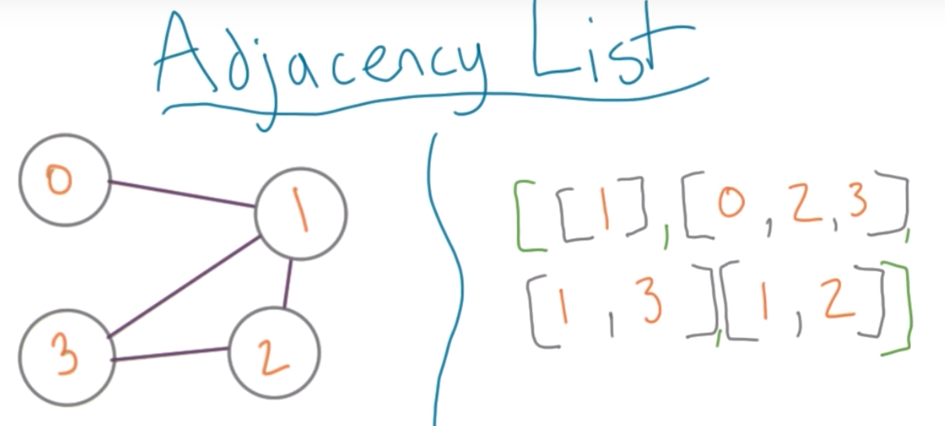 Adjacency List
0
1
3
2
[[1],[0,2,3],
[1,3],[1,2]]